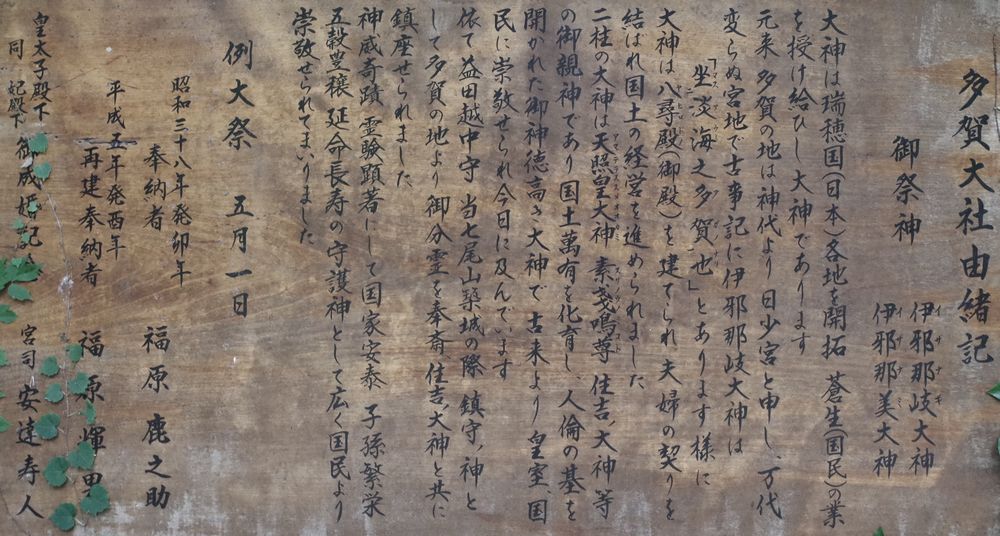 多賀大社由緒記
御祭神
伊邪那岐大神
イザナキ
伊邪那美大神
イザナミ
大神は瑞穂国(日本)各地を開拓 蒼生(国民)の業
を授け給ひし大神であります
元来多賀の地は神代より日少宮と申し、万代
変らぬ宮地で古事記に伊邪那岐大神は
「坐淡海之多賀也」とあります様に
大神は八尋殿(御殿)を建てられ夫婦の契りを
結ばれ国土の経営を進められました
二柱の大神は天照皇大神 素戔嗚尊 住吉ノ大神等
の御親神であり国土萬有を化育し、人倫の基を
開かれた御神徳高き大神で古来より皇室、国
民に崇敬せられ今日に及んでいます
依て益田越中守 当七尾山築城の際 鎮守ノ神と
して多賀の地より御分霊を奉斎 住吉大神と共に
鎮座せられました
神威奇蹟 霊験顕著にして国家安泰 子孫繁栄
五穀豊穣 延命長寿の守護神として広く国民より
崇敬せられてまいりました
例大祭 五月一日
昭和三十八年癸卯年
奉納者 福原鹿之助
平成五年癸酉年
再建奉納者 福原輝男
皇太子殿下
同 妃殿下 御成婚記念
宮司 安達寿人